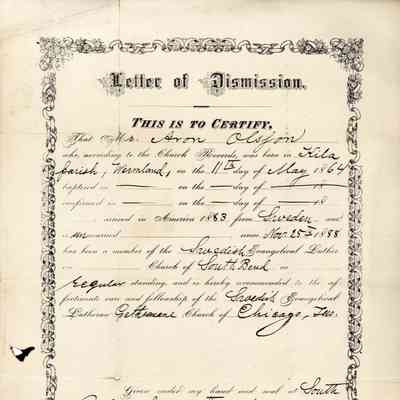 Letter of Dismission.
THIS IS TO CERTIFY,
That Mr. Aron Olsson
who, according to the Church Records, was born in Kila
parish, Wermland, on the 11th day of May 1864
baptized in — on the — day of — 18
confirmed in — on the — day of — 18
arrived in America 1883 from Sweden and
unmarried Nov. 25th 1888
has been a member of the Swedish Evangelical Luther
an Church of South Bend in
regular standing, and is hereby recommended to the af-
fectionate care and fellowship of the Swedish Evangelical
Lutheran Gethsemane Church of Chicago, Ills.
Given under my hand and seal at South